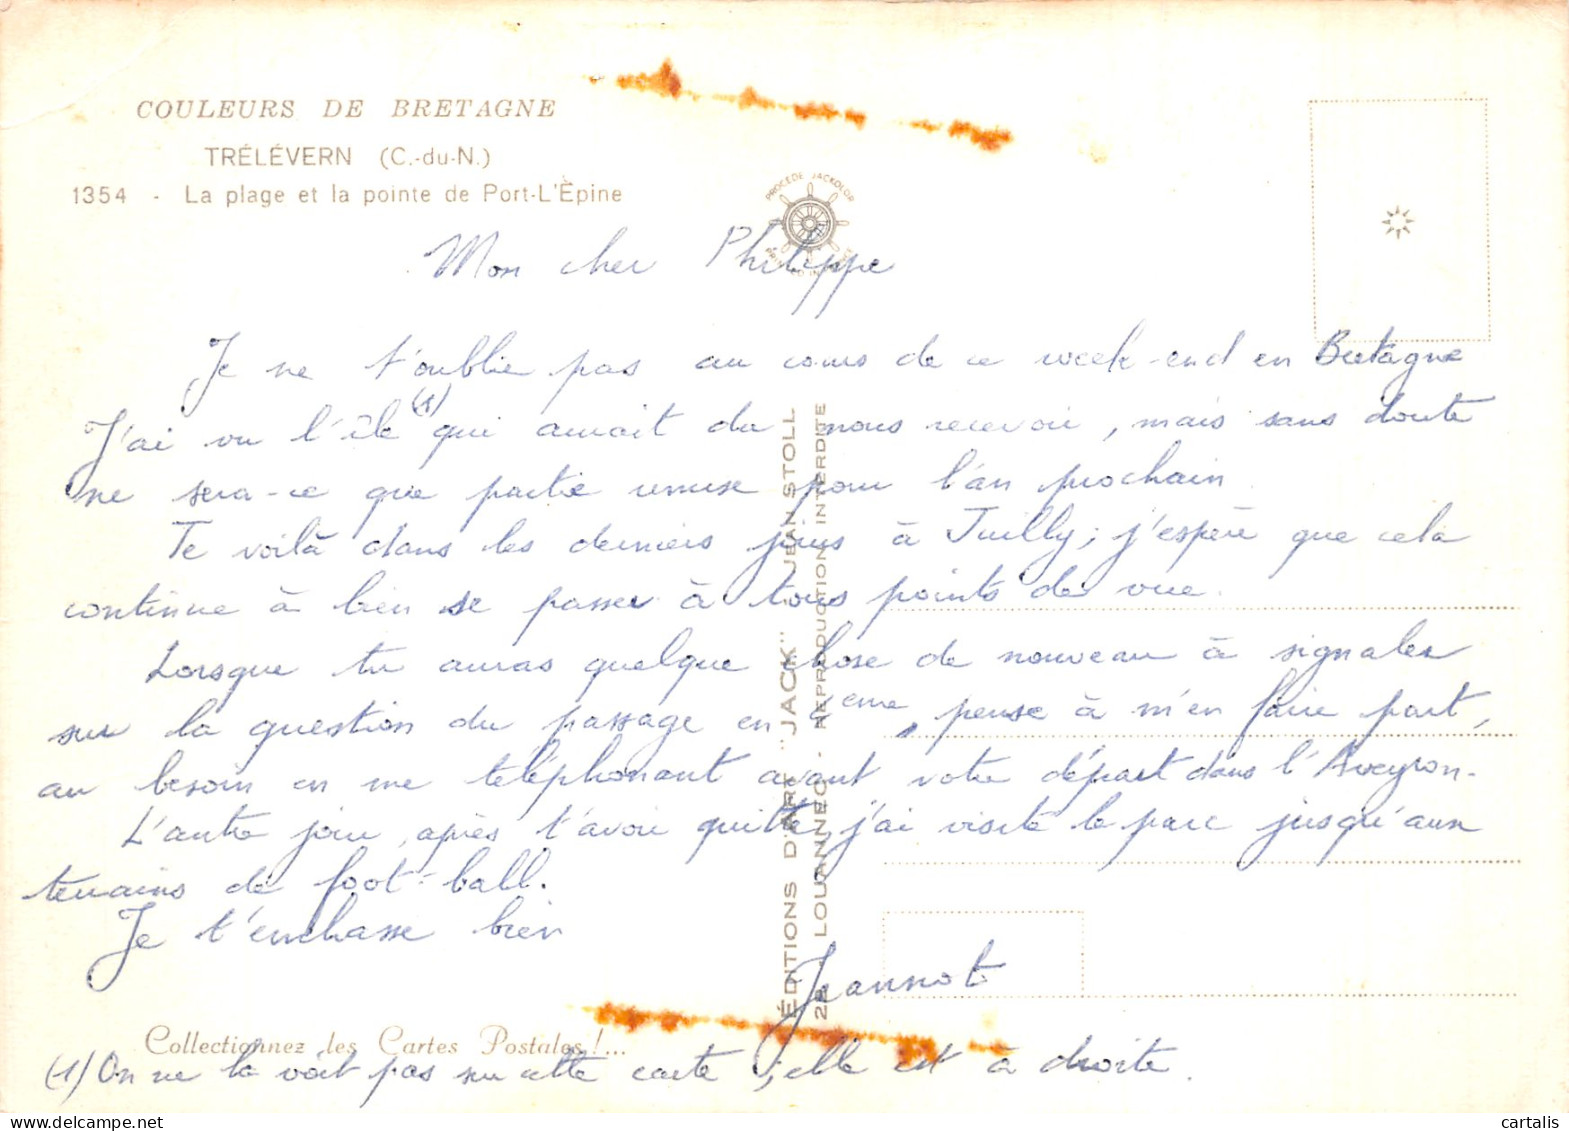 COULEURS DE BRETAGNE
TRÉLÉVERN (C.-du-N.)
1354 - La plage et la pointe de Port-L'Épine
PROCÉDÉ JACKOLOR
PRINTED IN
Mon cher Philippe
Je ne t'oublie pas au cours de ce week-end en Bretagne
J'ai vu l'île (1) qui aurait du nous recevoir, mais sans doute
ne sera-ce que partie remise pour l'an prochain.
Te voilà dans les derniers jours à Juilly; j'espère que cela
continue à bien se passer à tous points de vue.
Lorsque tu auras quelque chose de nouveau à signaler
sur la question du passage en eme, pense à m'en faire part,
au besoin en me téléphonant avant votre départ dans l'Aveyron.
L'autre jour, après t'avoir quitté, j'ai visité le parc jusqu'aux
terrains de foot-ball.
Je t'embrasse bien
Jeannot
ÉDITIONS D'ART "JACK" JEAN STOLL
22 LOUANNEC - REPRODUCTION INTERDITE
Collectionnez les Cartes Postales !...
(1) On ne la voit pas sur cette carte ; elle est à droite.
cartalis
delcampe.net